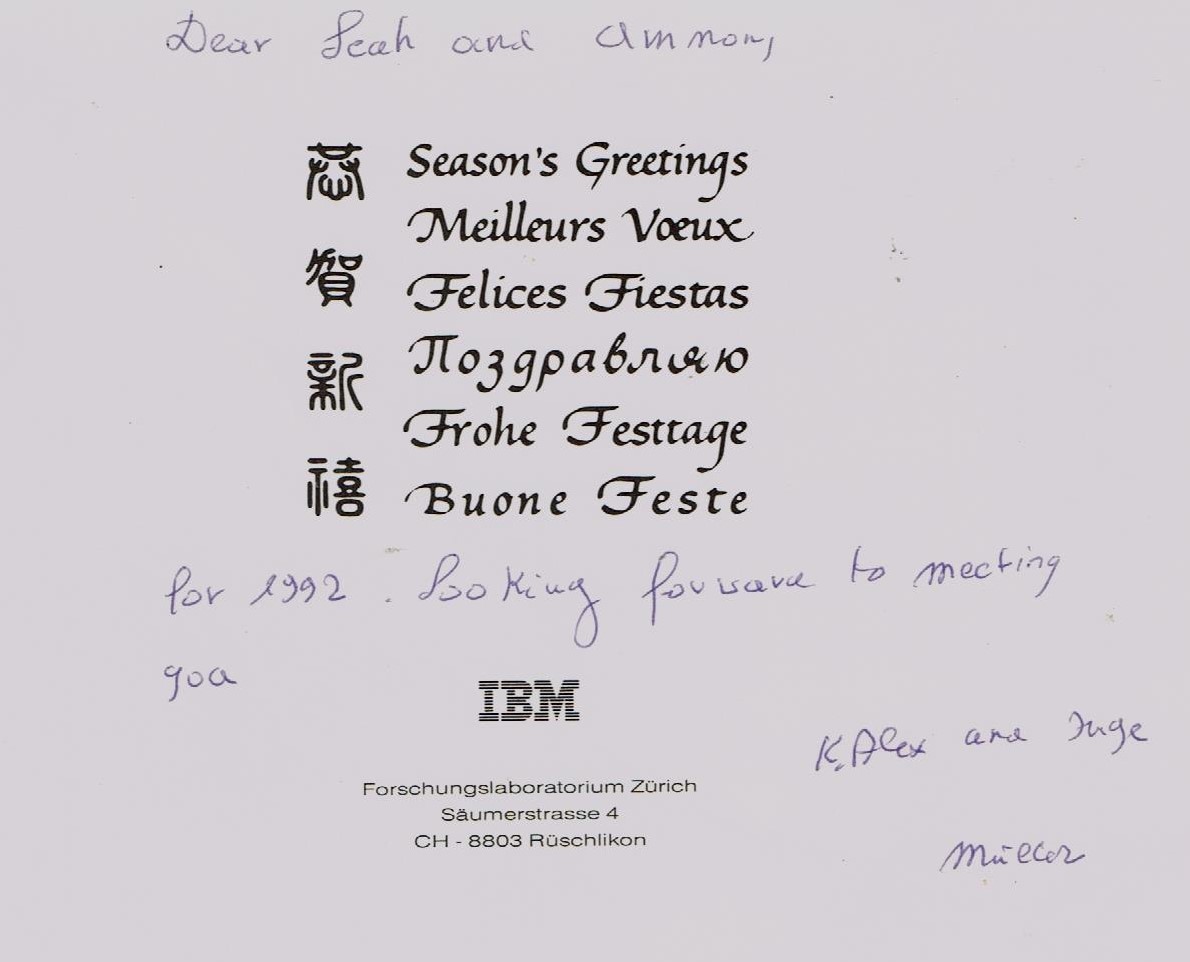 Dear Leah and Ammon,
恭賀新禧
Season's Greetings
Meilleurs Vœux
Felices Fiestas
Поздравляю
Frohe Festtage
Buone Feste
for 1992. Looking forward to meeting
you
IBM
K. Alex and Inge
Müller
Forschungslaboratorium Zürich
Säumerstrasse 4
CH - 8803 Rüschlikon